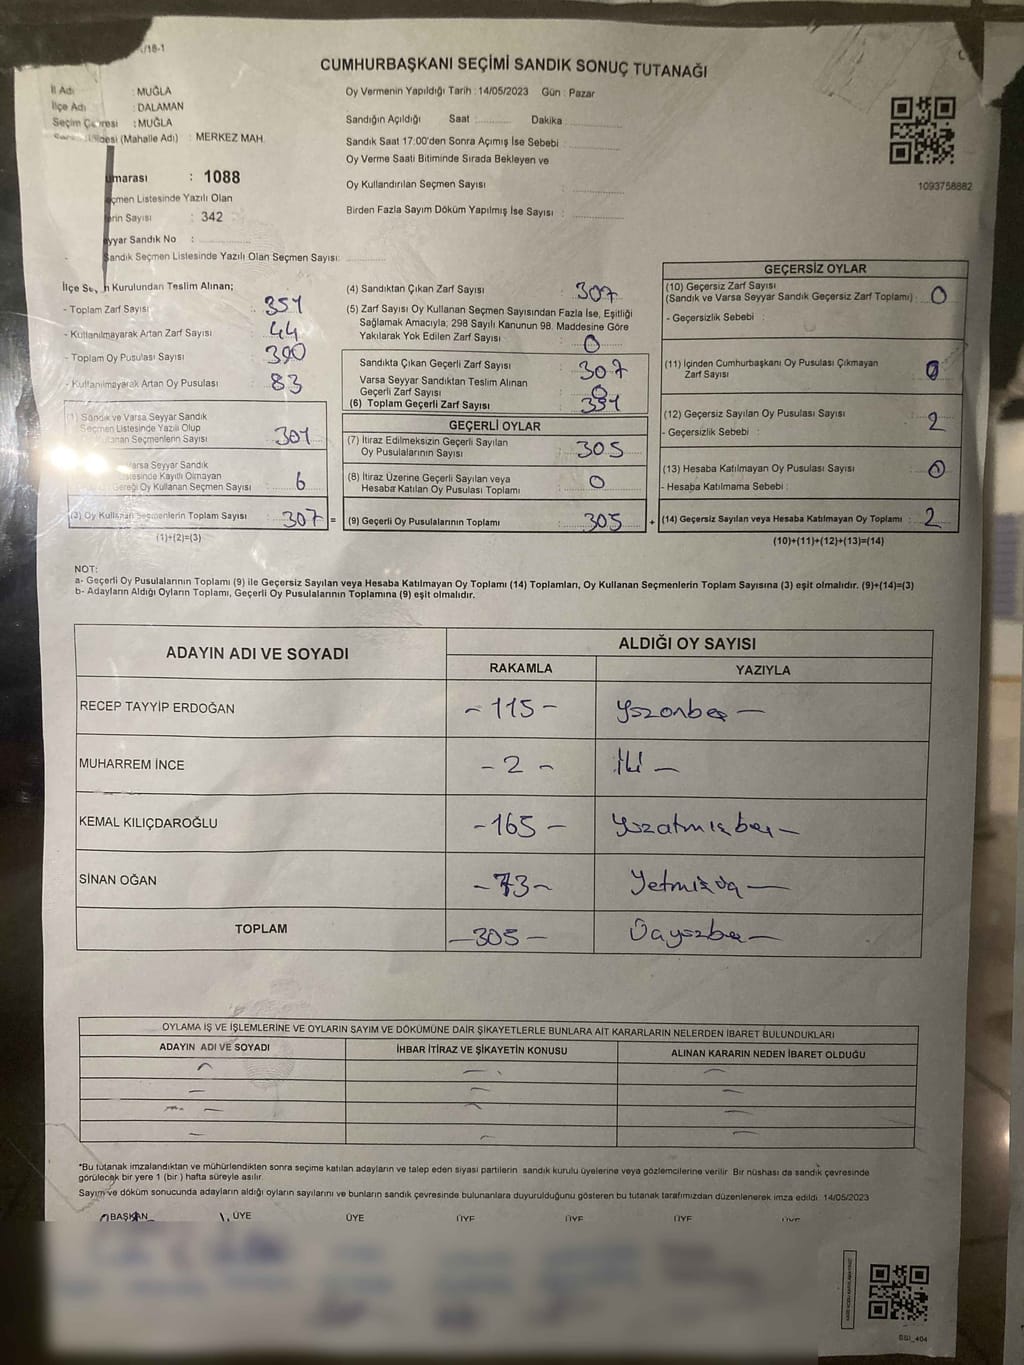 /18-1
CUMHURBAŞKANI SEÇİMİ SANDIK SONUÇ TUTANAĞI
İl Adı : MUĞLA
İlçe Adı : DALAMAN
Seçim Çevresi : MUĞLA
(Mahalle Adı) : MERKEZ MAH.
umarası : 1088
çmen Listesinde Yazılı Olan
erin Sayısı : 342
eyyar Sandık No :
Sandık Seçmen Listesinde Yazılı Olan Seçmen Sayısı:
Oy Vermenin Yapıldığı Tarih : 14/05/2023 Gün : Pazar
Sandığın Açıldığı Saat : Dakika :
Sandık Saat 17:00'den Sonra Açımış İse Sebebi :
Oy Verme Saati Bitiminde Sırada Bekleyen ve
Oy Kullandırılan Seçmen Sayısı :
Birden Fazla Sayım Döküm Yapılmış İse Sayısı :
1093758882
İlçe Se n Kurulundan Teslim Alınan;
- Toplam Zarf Sayısı : 351
- Kullanılmayarak Artan Zarf Sayısı : 44
- Toplam Oy Pusulası Sayısı : 390
- Kullanılmayarak Artan Oy Pusulası : 83
(1) Sandık ve Varsa Seyyar Sandık
Seçmen Listesinde Yazılı Olup
anan Seçmenlerin Sayısı : 301
Varsa Seyyar Sandık
Listesinde Kayıtlı Olmayan
Gereği Oy Kullanan Seçmen Sayısı : 6
(3) Oy Kullanan Seçmenlerin Toplam Sayısı : 307 =
(1)+(2)=(3)
(4) Sandıktan Çıkan Zarf Sayısı : 307
(5) Zarf Sayısı Oy Kullanan Seçmen Sayısından Fazla İse, Eşitliği
Sağlamak Amacıyla; 298 Sayılı Kanunun 98. Maddesine Göre
Yakılarak Yok Edilen Zarf Sayısı : 0
Sandıkta Çıkan Geçerli Zarf Sayısı : 307
Varsa Seyyar Sandıktan Teslim Alınan
Geçerli Zarf Sayısı : 0
(6) Toplam Geçerli Zarf Sayısı :
GEÇERLİ OYLAR
(7) İtiraz Edilmeksizin Geçerli Sayılan
Oy Pusulalarının Sayısı : 305
(8) İtiraz Üzerine Geçerli Sayılan veya
Hesaba Katılan Oy Pusulası Toplamı : 0
(9) Geçerli Oy Pusulalarının Toplamı : 305 +
GEÇERSİZ OYLAR
(10) Geçersiz Zarf Sayısı
(Sandık ve Varsa Seyyar Sandık Geçersiz Zarf Toplamı) : 0
- Geçersizlik Sebebi :
(11) İçinden Cumhurbaşkanı Oy Pusulası Çıkmayan
Zarf Sayısı : 0
(12) Geçersiz Sayılan Oy Pusulası Sayısı : 2
- Geçersizlik Sebebi :
(13) Hesaba Katılmayan Oy Pusulası Sayısı : 0
- Hesaba Katılmama Sebebi :
(14) Geçersiz Sayılan veya Hesaba Katılmayan Oy Toplamı : 2
(10)+(11)+(12)+(13)=(14)
NOT:
a- Geçerli Oy Pusulalarının Toplamı (9) ile Geçersiz Sayılan veya Hesaba Katılmayan Oy Toplamı (14) Toplamları, Oy Kullanan Seçmenlerin Toplam Sayısına (3) eşit olmalıdır. (9)+(14)=(3)
b- Adayların Aldığı Oyların Toplamı, Geçerli Oy Pusulalarının Toplamına (9) eşit olmalıdır.
ADAYIN ADI VE SOYADI
ALDIĞI OY SAYISI
RAKAMLA YAZIYLA
RECEP TAYYİP ERDOĞAN - 115 - Yüzonbeş -
MUHARREM İNCE - 2 - İki -
KEMAL KILIÇDAROĞLU - 165 - Yüzatmışbeş -
SİNAN OĞAN - 73 - Yetmişüç -
TOPLAM - 305 - Üçyüzbeş -
OYLAMA İŞ VE İŞLEMLERİNE VE OYLARIN SAYIM VE DÖKÜMÜNE DAİR ŞİKAYETLERLE BUNLARA AİT KARARLARIN NELERDEN İBARET BULUNDUKLARI
ADAYIN ADI VE SOYADI İHBAR İTİRAZ VE ŞİKAYETİN KONUSU ALINAN KARARIN NEDEN İBARET OLDUĞU
*Bu tutanak imzalandıktan ve mühürlendikten sonra seçime katılan adayların ve talep eden siyasi partilerin sandık kurulu üyelerine veya gözlemcilerine verilir. Bir nüshası da sandık çevresinde
görülecek bir yere 1 (bir) hafta süreyle asılır.
Sayım ve döküm sonucunda adayların aldığı oyların sayılarını ve bunların sandık çevresinde bulunanlara duyurulduğunu gösteren bu tutanak tarafımızdan düzenlenerek imza edildi. 14/05/2023
BAŞKAN ÜYE ÜYE ÜYE ÜYE ÜYE ÜYE
SSI_404